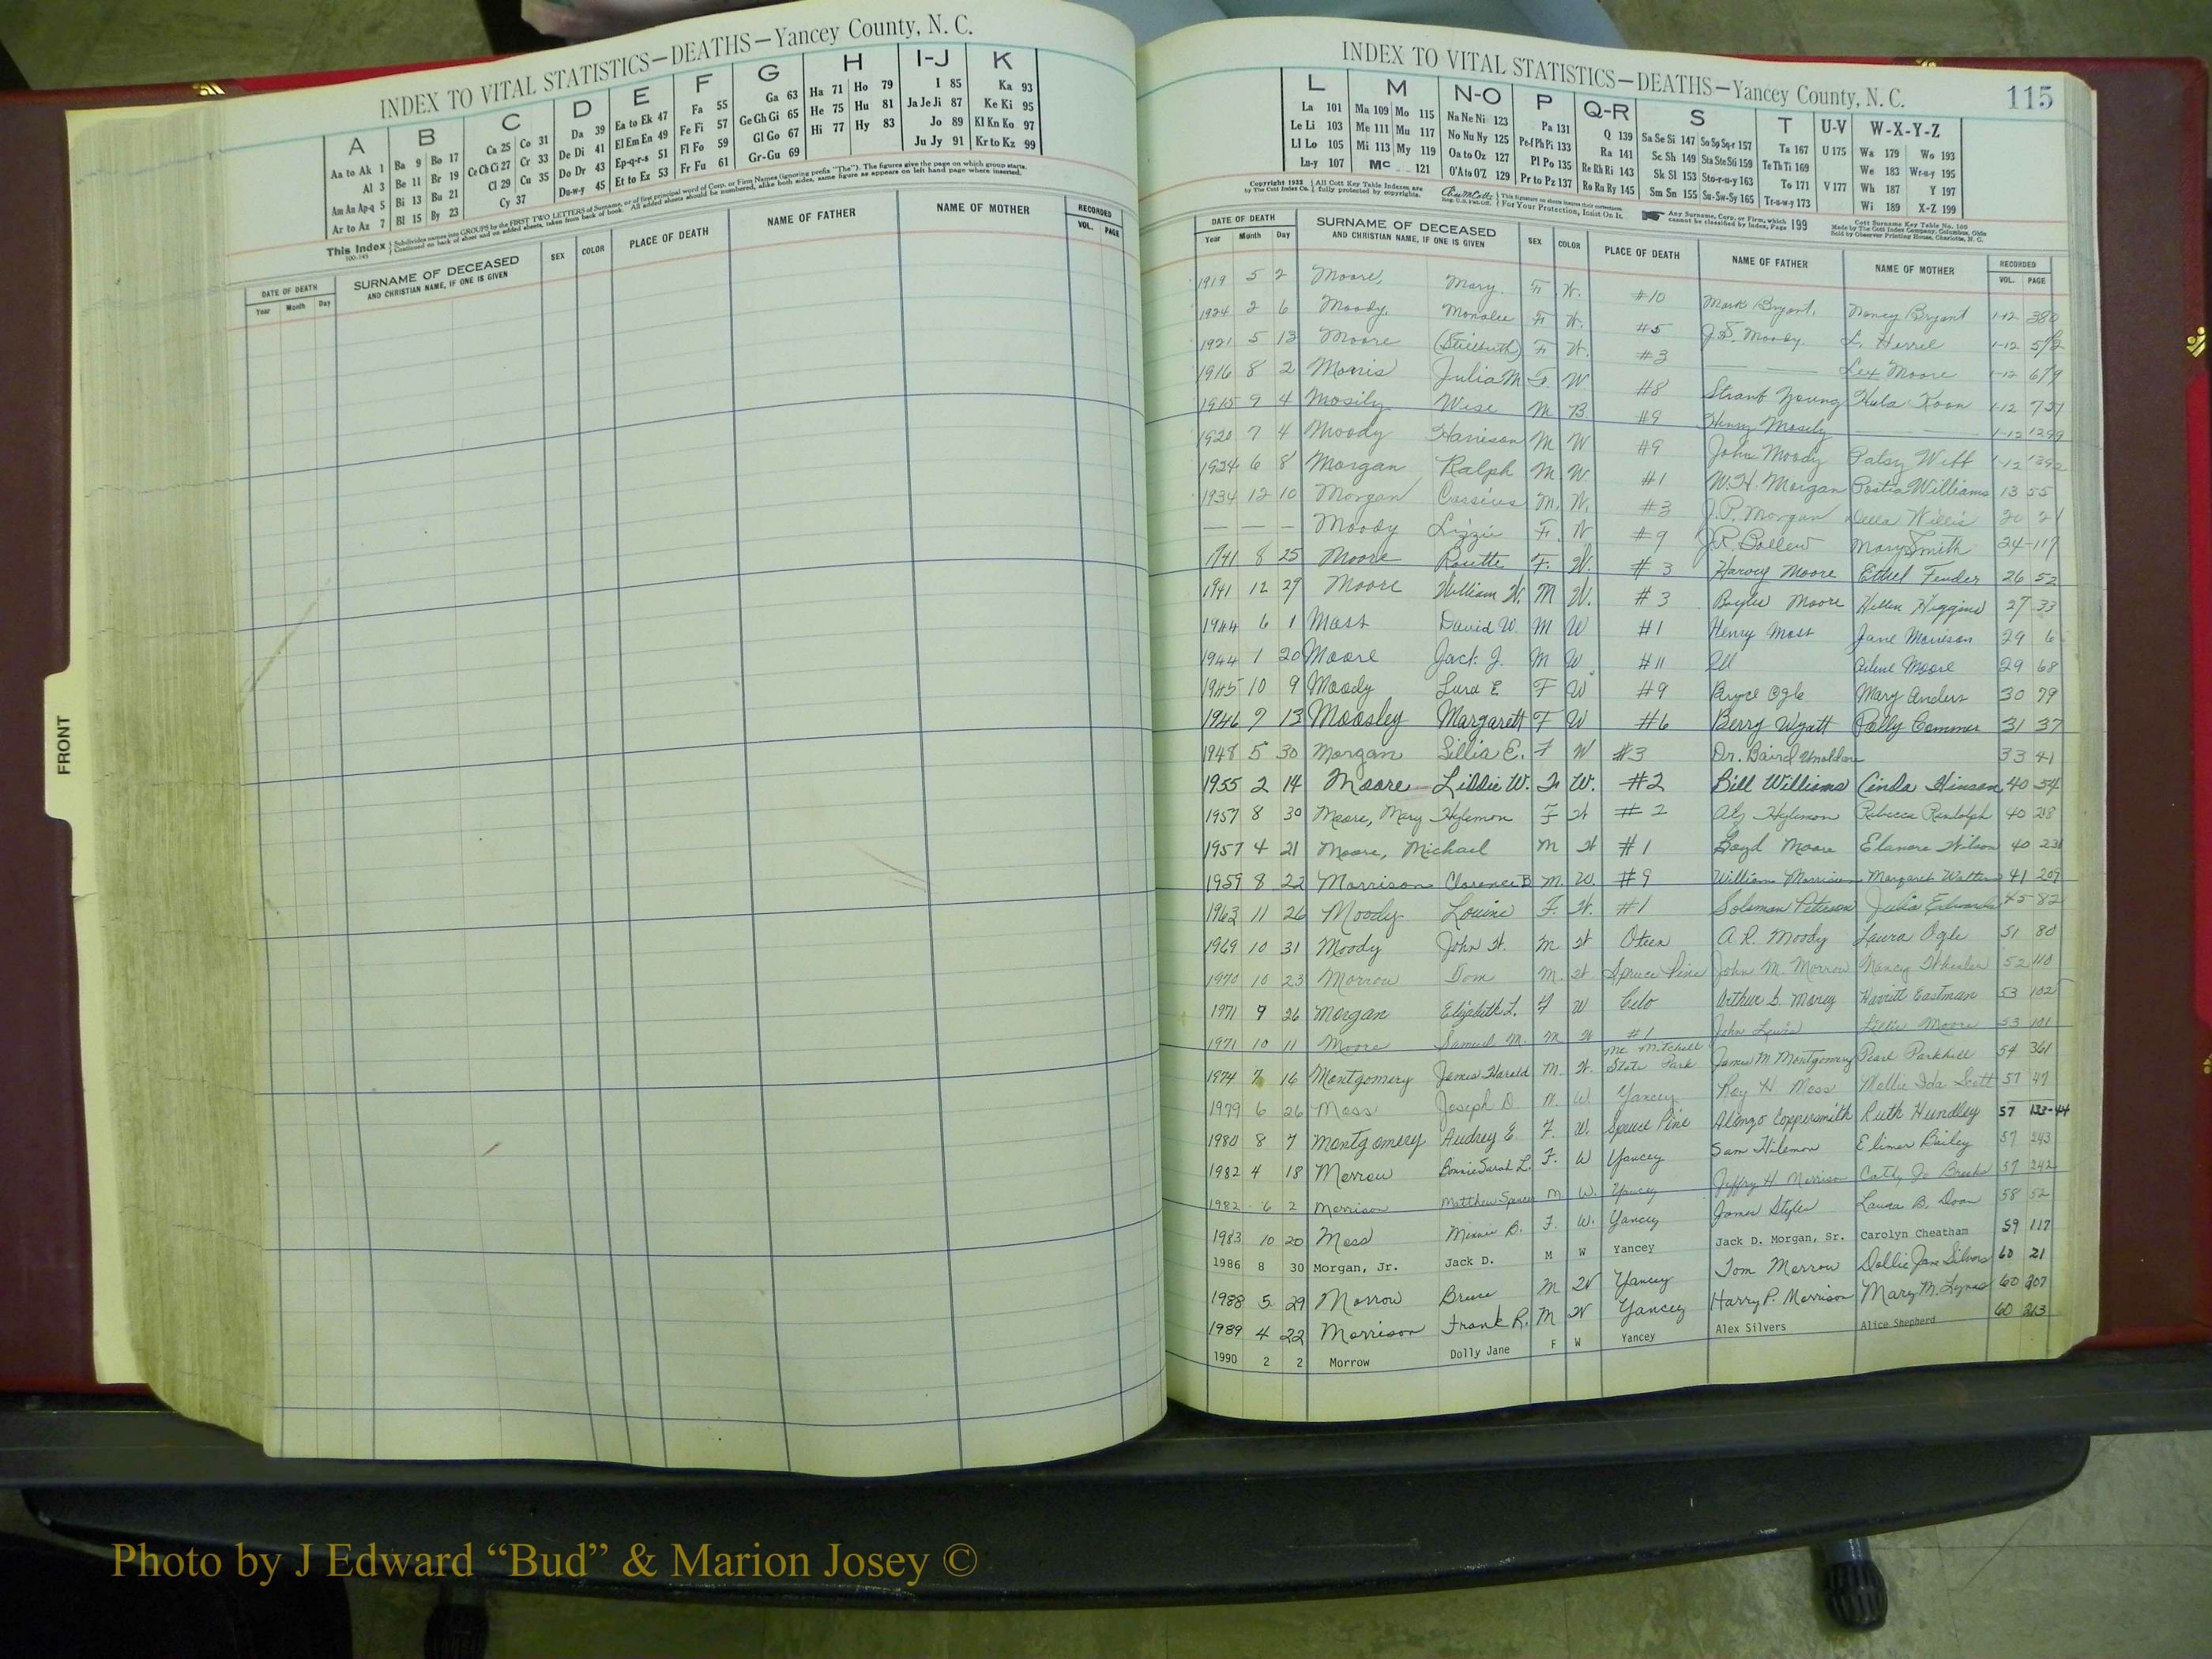 INDEX TO VITAL STATISTICS—DEATHS—Yancey County, N. C.
A B C D E F G H I-J K
Aa to Ak 1 Ba 9 Bo 17 Ca 25 Co 31 Da 39 Ea to Ek 47 Fa 55 Ga 63 Ha 71 Ho 79 I 85 Ka 93
Al 3 Be 11 Br 19 Ce Ch Ci 27 Cr 33 De Di 41 El Em En 49 Fe Fi 57 Ge Gh Gi 65 He 75 Hu 81 Ja Je Ji 87 Ke Ki 95
Am An Ap-q 5 Bi 13 Bu 21 Cl 29 Cu 35 Do Dr 43 Ep-q-r-s 51 Fl Fo 59 Gl Go 67 Hi 77 Hy 83 Jo 89 Kl Kn Ko 97
Ar to Az 7 Bl 15 By 23 Cy 37 Du-w-y 45 Et to Ez 53 Fr Fu 61 Gr-Gu 69 Ju Jy 91 Kr to Kz 99
This Index
Subdivides names into GROUPS by the FIRST TWO LETTERS of Surname, or of first principal word of Corp. or Firm Names (ignoring prefix "The"). The figures give the page on which group starts.
Continued on back of sheet and on added sheets, taken from back of book. All added sheets should be numbered, alike both sides, same figure as appears on left hand page where inserted.
DATE OF DEATH SURNAME OF DECEASED SEX COLOR PLACE OF DEATH NAME OF FATHER NAME OF MOTHER RECORDED
Year Month Day AND CHRISTIAN NAME, IF ONE IS GIVEN VOL. PAGE
FRONT
INDEX TO VITAL STATISTICS—DEATHS—Yancey County, N. C. 115
L M N-O P Q-R S T U-V W-X-Y-Z
La 101 Ma 109 Mo 115 Na Ne Ni 123 Pa 131 Q 139 Sa Se Si 147 So Sp Sq-r 157 Ta 167 U 175 Wa 179 Wo 193
Le Li 103 Me 111 Mu 117 No Nu Ny 125 Pe-f Ph Pi 133 Ra 141 Sc Sh 149 Sta Ste Sti 159 Te Th Ti 169 We 183 Wr-u-y 195
Ll Lo 105 Mi 113 My 119 Oa to Oz 127 Pl Po 135 Re Rh Ri 143 Sk Sl 153 Sto-r-u-y 163 To 171 V 177 Wh 187 Y 197
Lu-y 107 Mc 121 O'A to O'Z 129 Pr to Pz 137 Ro Ru Ry 145 Sm Sn 155 Su-Sw-Sy 165 Tr-u-w-y 173 Wi 189 X-Z 199
Copyright 1922 by The Cott Index Co.
All Cott Key Table Indexes are fully protected by copyrights.
For Your Protection, Insist On It.
Any Surname, Corp. or Firm, which cannot be classified by Index, Page 199
Cott Surname Key Table No. 100
Made by The Cott Index Company, Columbus, Ohio
Sold by Observer Printing House, Charlotte, N. C.
DATE OF DEATH SURNAME OF DECEASED SEX COLOR PLACE OF DEATH NAME OF FATHER NAME OF MOTHER RECORDED
Year Month Day AND CHRISTIAN NAME, IF ONE IS GIVEN VOL. PAGE
1919 5 2 Moore, Mary F W. #10 Mark Bryant, Nancy Bryant 1-12 380
1924 2 6 Moody, Monalee F W. #5 J.S. Moody L. Herrel 1-12
1921 5 13 Moore (Stillbirth) F W. #3 — — Lex Moore 1-12 679
1916 8 2 Morris Julia M F. W #8 Young 1-12 751
1915 9 4 Mosily Wise M B #9 Henry Mosily — — 1-12 1299
1920 7 4 Moody Harrison M W #9 John Moody Patsy Webb 1-12 1392
1924 6 8 Morgan Ralph M W #1 W.H. Morgan Williams 13 55
1934 12 10 Morgan Cassius M. W. #3 J.P. Morgan Della Willis 20 21
— — — Moody Lizzie F. W #9 J.R. Ballew Mary Smith 24 117
1941 8 25 Moore Rosette F. W. #3 Harvey Moore Ethel Fender 26 52
1941 12 29 Moore William W. M W. #3 Moore Hellen Higgins 27 33
1944 6 1 Moss David W. M W #1 Henry Moss Jane Morrison 29 6
1944 1 20 Moore Jack J. M W #11 Ill Arlene Moore 29 68
1945 10 9 Moody Lura E F W #9 Bryce Ogle Mary Anders 30 79
1946 7 13 Moosley Margarett F W #6 Berry Wyatt Polly 31 37
1948 5 30 Morgan Lillia E. F W #3 Dr. Baird 33 41
1955 2 14 Moore Lissie W. F W. #2 Bill Williams Cinda Hinson 40 54
1957 8 30 Moore, Mary Hylemon F W #2 Hylemon Rebecca Randolph 40 218
1957 4 21 Moore, Michael M W #1 Boyd Moore Elanore Wilson 40 231
1959 8 22 Morrison Clarence B M. W. #9 William Morrison Margaret 41 209
1963 11 26 Moody F. W. #1 Soloman Peterson Julia Edwards 45 82
1969 10 31 Moody John W. M W Oteen A R. Moody Laura Ogle 51 80
1970 10 23 Morrow Tom M. W. Spruce Pine John M. Morrow Nancy Wheeler 52 110
1971 9 26 Morgan Elizabeth L. F W Celo Arthur S. Harriett Eastman 53 102
1971 10 11 Moore Samuel M. M W #1 John Lewis Lillie Moore 53 101
Mt Mitchell
1974 7 16 Montgomery James Harold M. W. State Park James M Montgomery Pearl Parkhill 54 361
1979 6 26 Moss Joseph D M. W Yancey Roy H Moss Mollie Ida Scott 57 47
1980 8 7 Montgomery Audrey E. F. W. Spruce Pine Alonzo Coppersmith Ruth Hundley 57 133-44
1982 4 18 Morrow Bonnie Sarah L. F. W Yancey Sam Hilemon Bailey 57 243
1982 6 2 Morrison Matthew Spencer M W. Yancey Jeffry H Morrison Cathy Jo Brooks 57 242
1983 10 20 Moss Minnie B. F. W. Yancey James Styles Laura B. 58 52
1986 8 30 Morgan, Jr. Jack D. M W Yancey Jack D. Morgan, Sr. Carolyn Cheatham 59 117
1988 5 29 Morrow Bruce M W Yancey Tom Morrow Dollie Jane Silvers 60 21
1989 4 22 Morrison Frank R. M W Yancey Harry P. Morrison Mary M. 60 207
1990 2 2 Morrow Dolly Jane F W Yancey Alex Silvers Alice Shepherd 60 263
Photo by J Edward “Bud” & Marion Josey ©